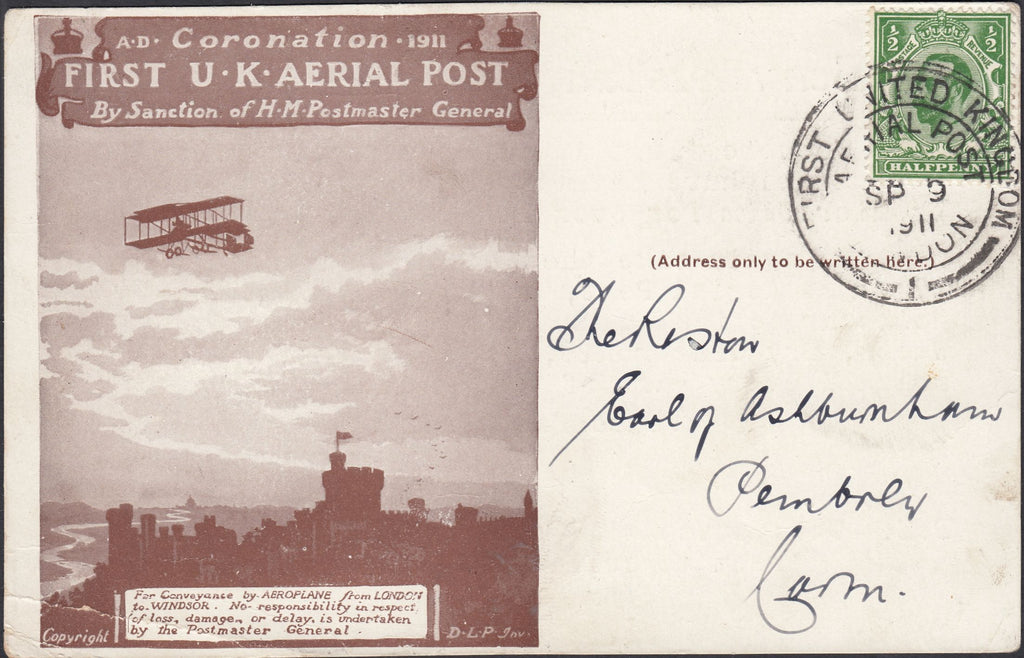 A·D· Coronation · 1911
FIRST U·K·AERIAL POST
By Sanction of H·M·Postmaster General
For Conveyance by AEROPLANE from LONDON
to WINDSOR. No responsibility in respect
of loss, damage, or delay, is undertaken
by the Postmaster General.
Copyright
D·L·P Inv.
½ ½
POSTAGE REVENUE
HALFPENNY
FIRST UNITED KINGDOM
AERIAL POST
SP 9
1911
LONDON
1
(Address only to be written here.)
Earl of Ashburnham
Pembrey
Carm.